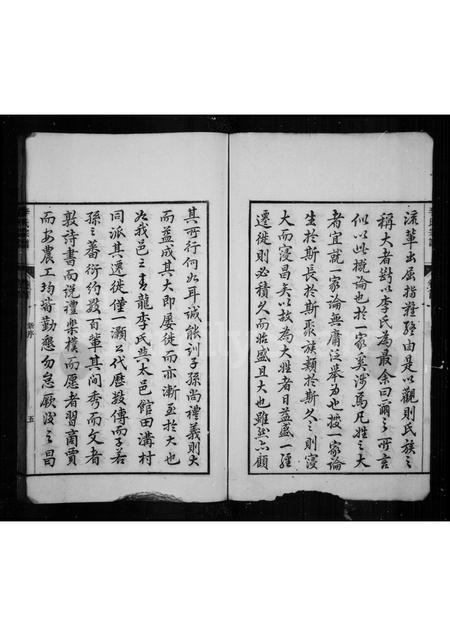 流輩出屈指難終由是以觀則氏族之
稱大者斷以李氏為最余曰爾之所言
似以此概論也於一家奚涉焉凡姓之大
者宜就一家論無庸泛舉為也援一家論
生於斯長於斯聚族類於斯久之則寖
大而寖昌矣以故為大姓者日益盛一經
遷徙則必積久而始盛且大也雖然亦顧
其所行何如耳誠能訓子孫尚禮義則大
而益成其大即屢徙而亦漸至於大也
如我邑之青龍李氏與太邑館田溝村
同派其遷徙僅一灝公代歷數傳而子若
孫之蕃衍約數百輩其间秀而文者
敦詩書而說禮樂樸而愿者習商賈
而安農工均皆勤懇勿怠厥後之昌
新序
五